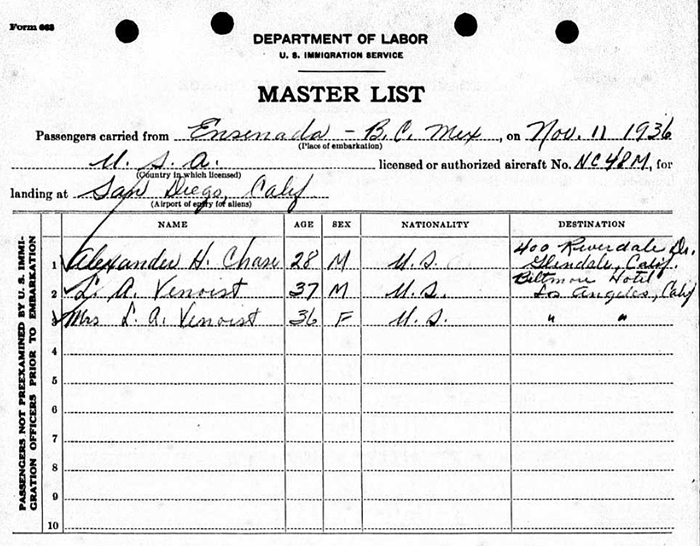 Form 663
DEPARTMENT OF LABOR
U. S. IMMIGRATION SERVICE
MASTER LIST
Passengers carried from Ensenada - B.C. Mex, on Nov. 11 1936
(Place of embarkation)
U. S. A. licensed or authorized aircraft No. NC48M, for
(Country in which licensed)
landing at San Diego, Calif
(Airport of entry for aliens)
NAME AGE SEX NATIONALITY DESTINATION
PASSENGERS NOT PREEXAMINED BY U. S. IMMI-
GRATION OFFICERS PRIOR TO EMBARKATION
400 Riverdale Dr.
1 Alexander H. Chase 28 M U. S. Glendale, Calif.
Biltmore Hotel
2 L. A. Venoist 37 M U. S. Los Angeles, Calif
3 Mrs L. A. Venoist 36 F U. S. " "
4
5
6
7
8
9
10